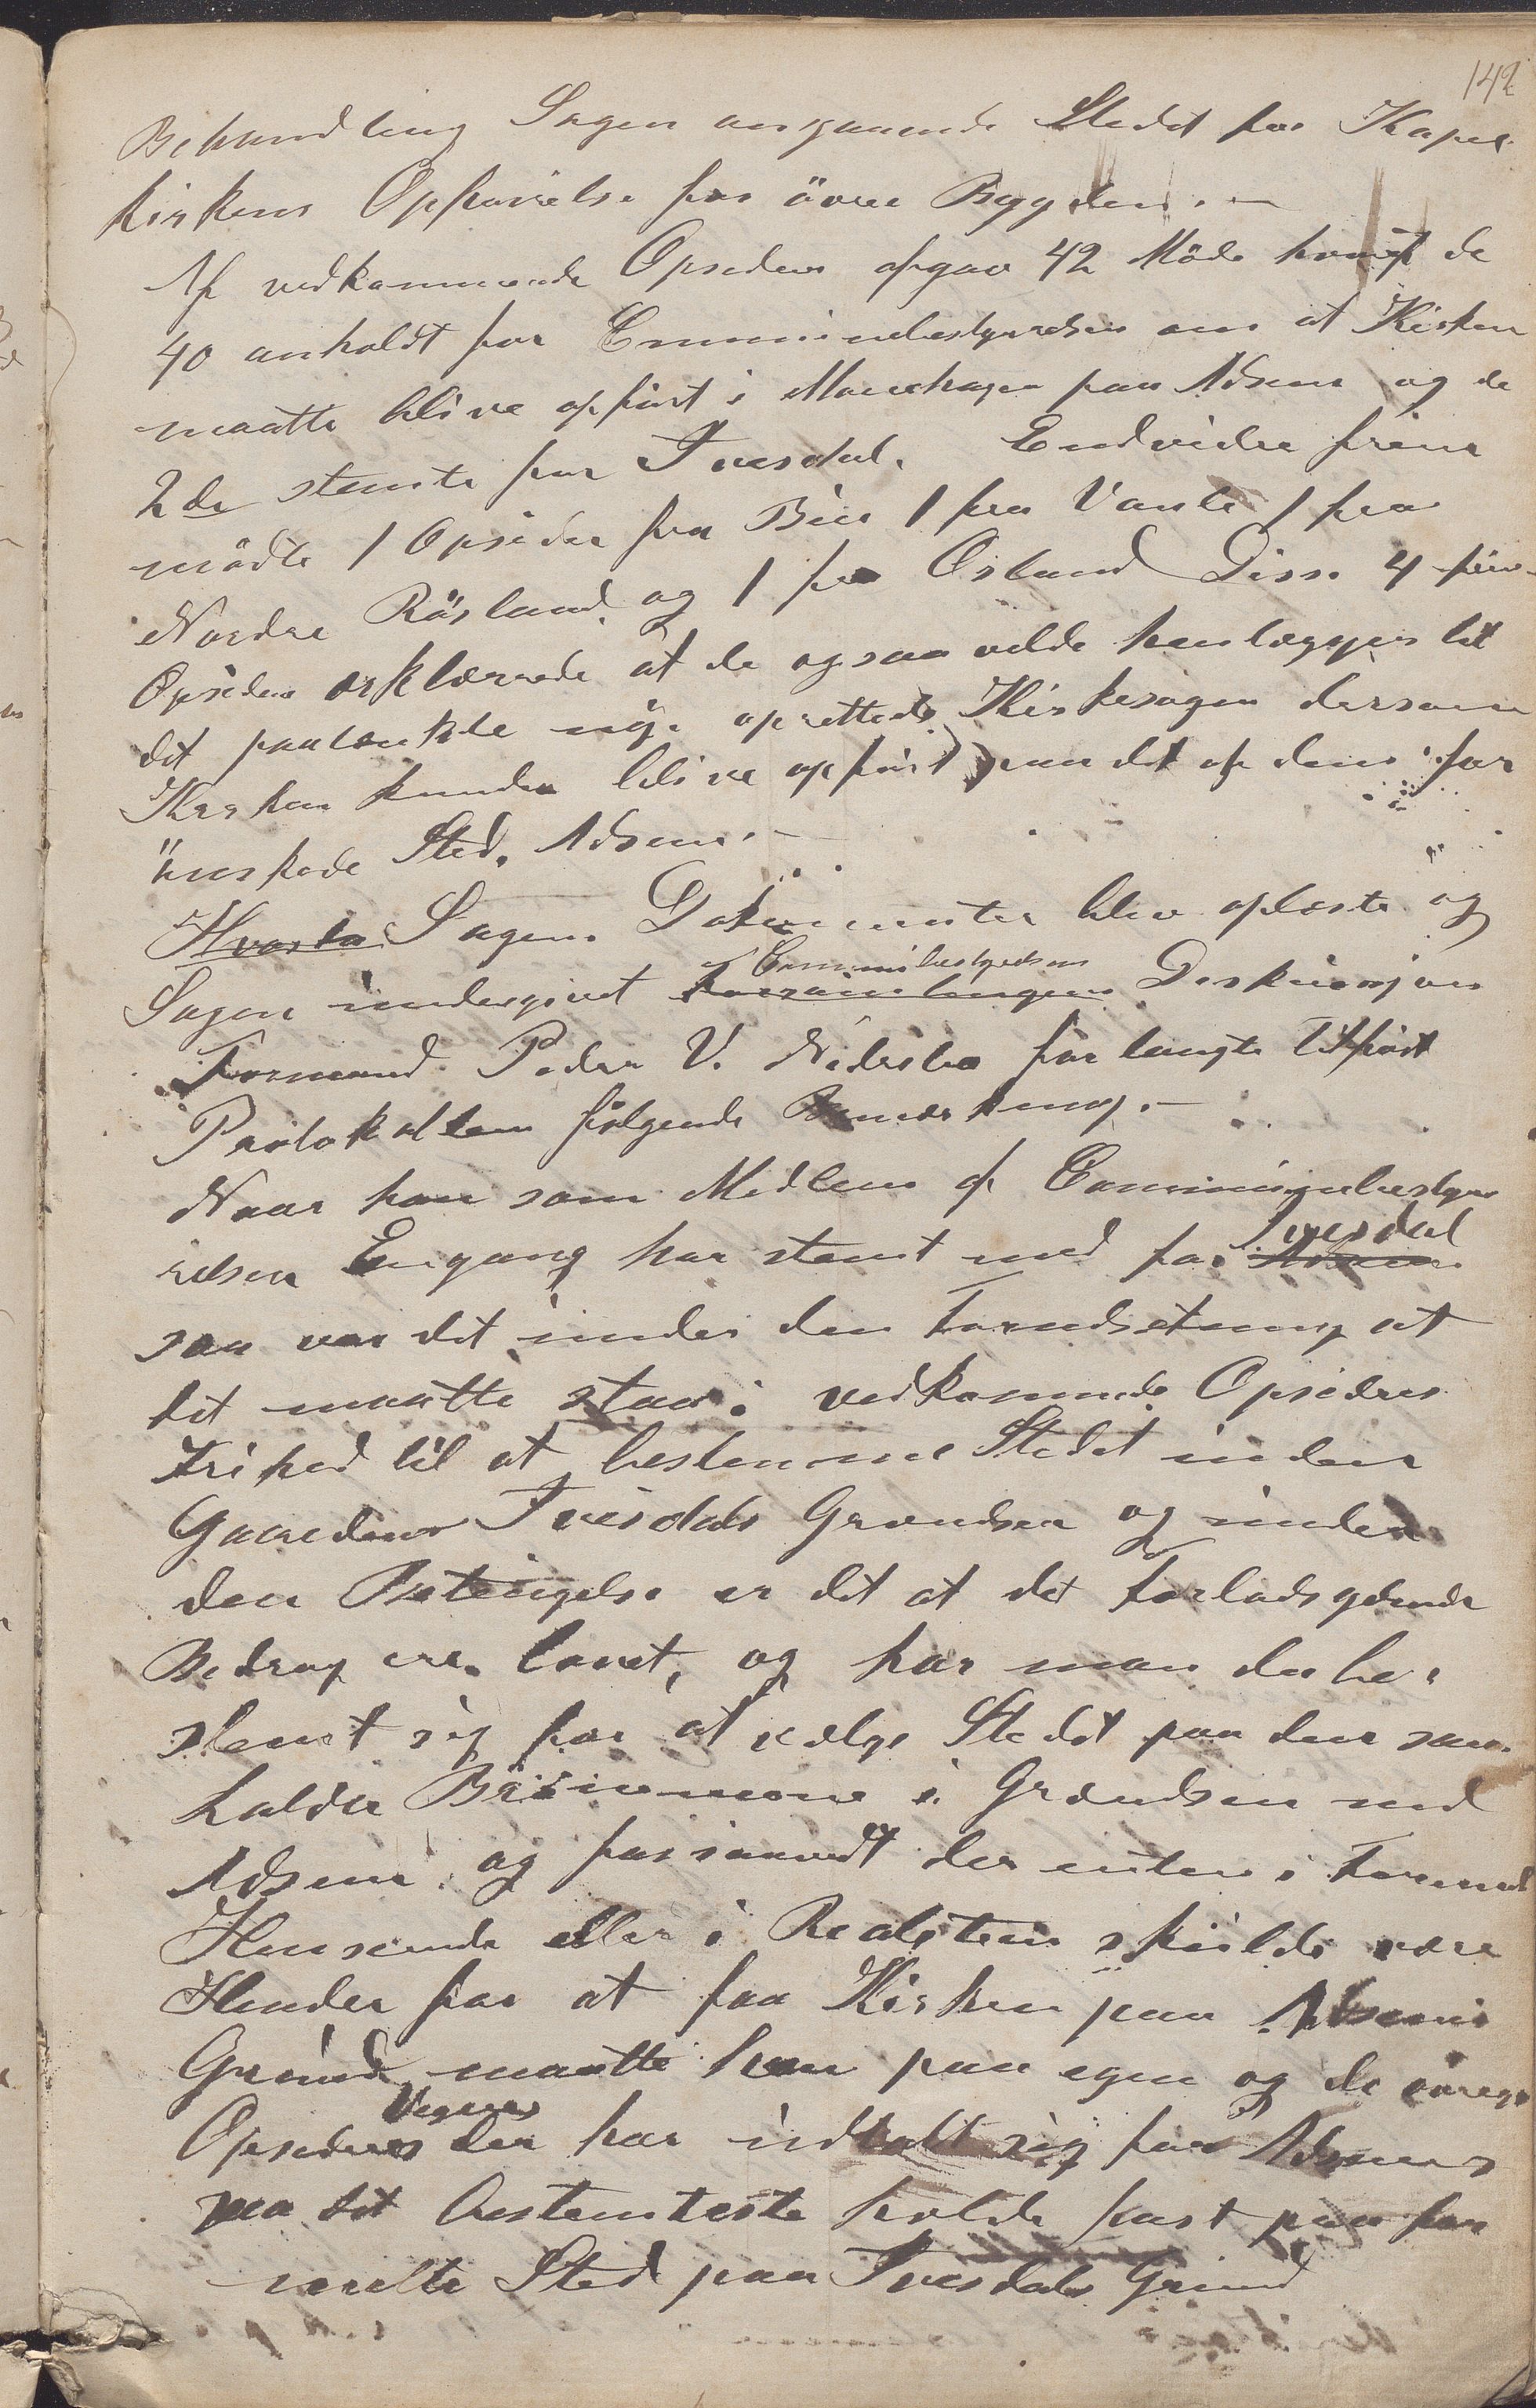 142
Behandling Sagen angaaende Stedet for Kapel
kirkens Opförelse for övre Bygden. –
Af vedkommende Opsidere afgav 42 Möde hvoraf de
40 anholdt for Communebestyrelsen om at Kirken
maatte blive opfört i Monehagen paa Adsene og de
2de stemte for Tvesdal. Endvidere frem
mödte 1 Opsider fra Bie 1 fra Vante 1 fra
Nordre Rösland og 1 fra Osland Disse 4 fire
Opsidere erklærede at de ogsaa vilde henlægges til
det paatænkte nye oprettede Kirkesogn dersom
Kirken kunde blive opfört paa det af dem for
önskede Sted. Adsene. –
Hvorda Sagens Dokumenter blev oplæste og
Communebestyrelsen
Sagen undergivet Forsamlingens Diskusjon
Formand Peder V. Nidesbo forlangte tilfört
Protokollen fölgende Bemærkning. –
Naar han som Medlem af Communebesty
Tvesdal
relsen Engang har stemt med for Adsene
saa var det under den Forudsetning at
det maatte staa i vedkommende Opsideres
Frihed til at bestemme Stedet inden
Gaardens Tvesdals Grændser og under
den Betingelse er det at det Forlods ydende
Bedrag er lovet, og har man der be-
stemt sig for at velge Stedet paa den saa
kaldte Brönemone i Grændsen med
Adsene og forsaavidt der enten i Formel
Henseende eller i Realiteten skulde være
Hinder for at faa Kirken paa Adsenes
Grund maatte han paa egen og de övrige
Vegne
Opsideres der har udtalt sig for Adsenes
paa det bestemteste holde fast paa for
nevnte Sted paa Tvesdals Grund